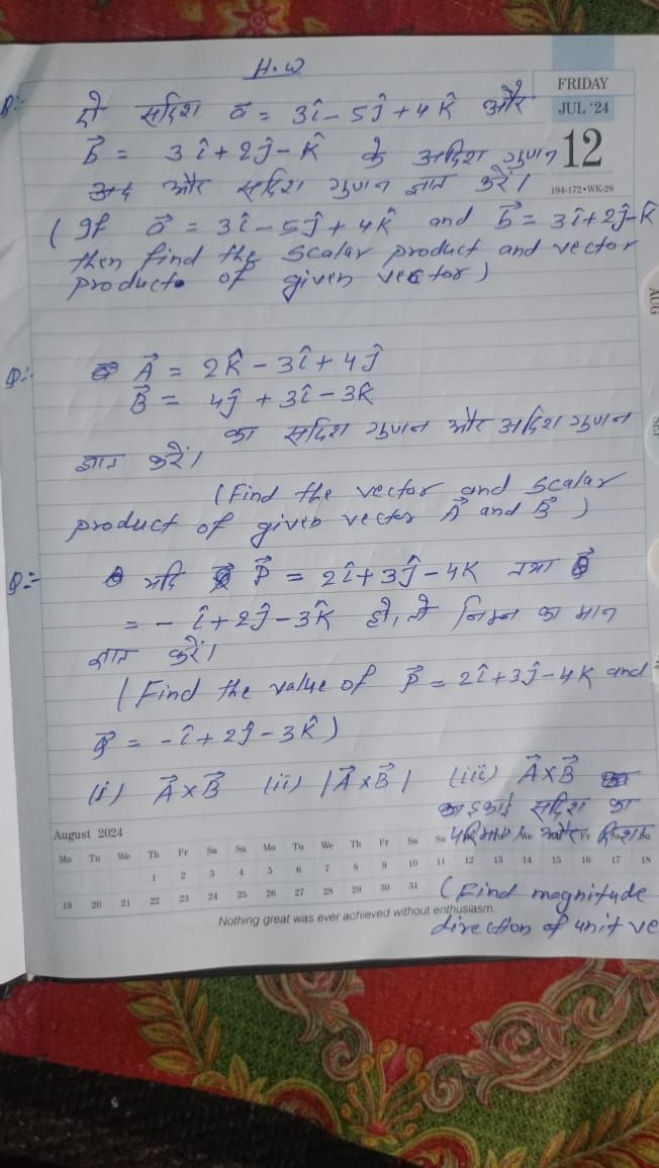 H.W
FRIDAY
JUL '24
12
194-172•WK-28
दो सदिश a⃗ = 3î - 5ĵ + 4k̂ और
b⃗ = 3î + 2ĵ - k̂ के अदिश गुणन
और सदिश गुणन ज्ञात करें।
(If a⃗ = 3î - 5ĵ + 4k̂ and b⃗ = 3î + 2ĵ - k̂
then find the scalar product and vector
product of given vector)
AUG
Q:- A⃗ = 2k̂ - 3î + 4ĵ
B⃗ = 4ĵ + 3î - 3k̂
का सदिश गुणन और अदिश गुणन
ज्ञात करें।
(Find the vector and scalar
product of given vector A⃗ and B⃗)
Q:- यदि P⃗ = 2î + 3ĵ - 4k तथा Q⃗
= - î + 2ĵ - 3k̂ हो, तो निम्न का मान
ज्ञात करें।
(Find the value of P⃗ = 2î + 3ĵ - 4k and
Q⃗ = -î + 2ĵ - 3k̂)
(i) A⃗×B⃗ (ii) |A⃗×B⃗| (iii) A⃗×B⃗
का इकाई सदिश का
परिमाण और दिशा
(Find magnitude
direction of unit ve
August 2024
Mo Tu We Th Fr Sa Su Mo Tu We Th Fr Sa Su
1 2 3 4 5 6 7 8 9 10 11 12 13 14 15 16 17 18
19 20 21 22 23 24 25 26 27 28 29 30 31
Nothing great was ever achieved without enthusiasm.